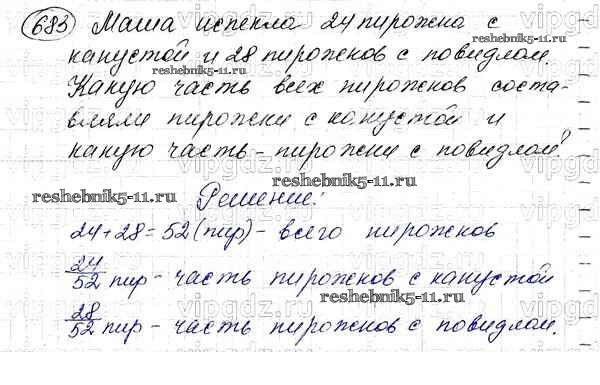 683 Маша испекла 24 пирожка с
капустой и 28 пирожков с повидлом.
reshebnik5-11.ru
Какую часть всех пирожков соста-
вляли пирожки с капустой и
какую часть - пирожки с повидлом?
reshebnik5-11.ru
reshebnik5-11.ru
Решение:
24+28=52 (пир) - всего пирожков
24/52 пир - часть пирожков с капустой
reshebnik5-11.ru
28/52 пир - часть пирожков с повидлом.